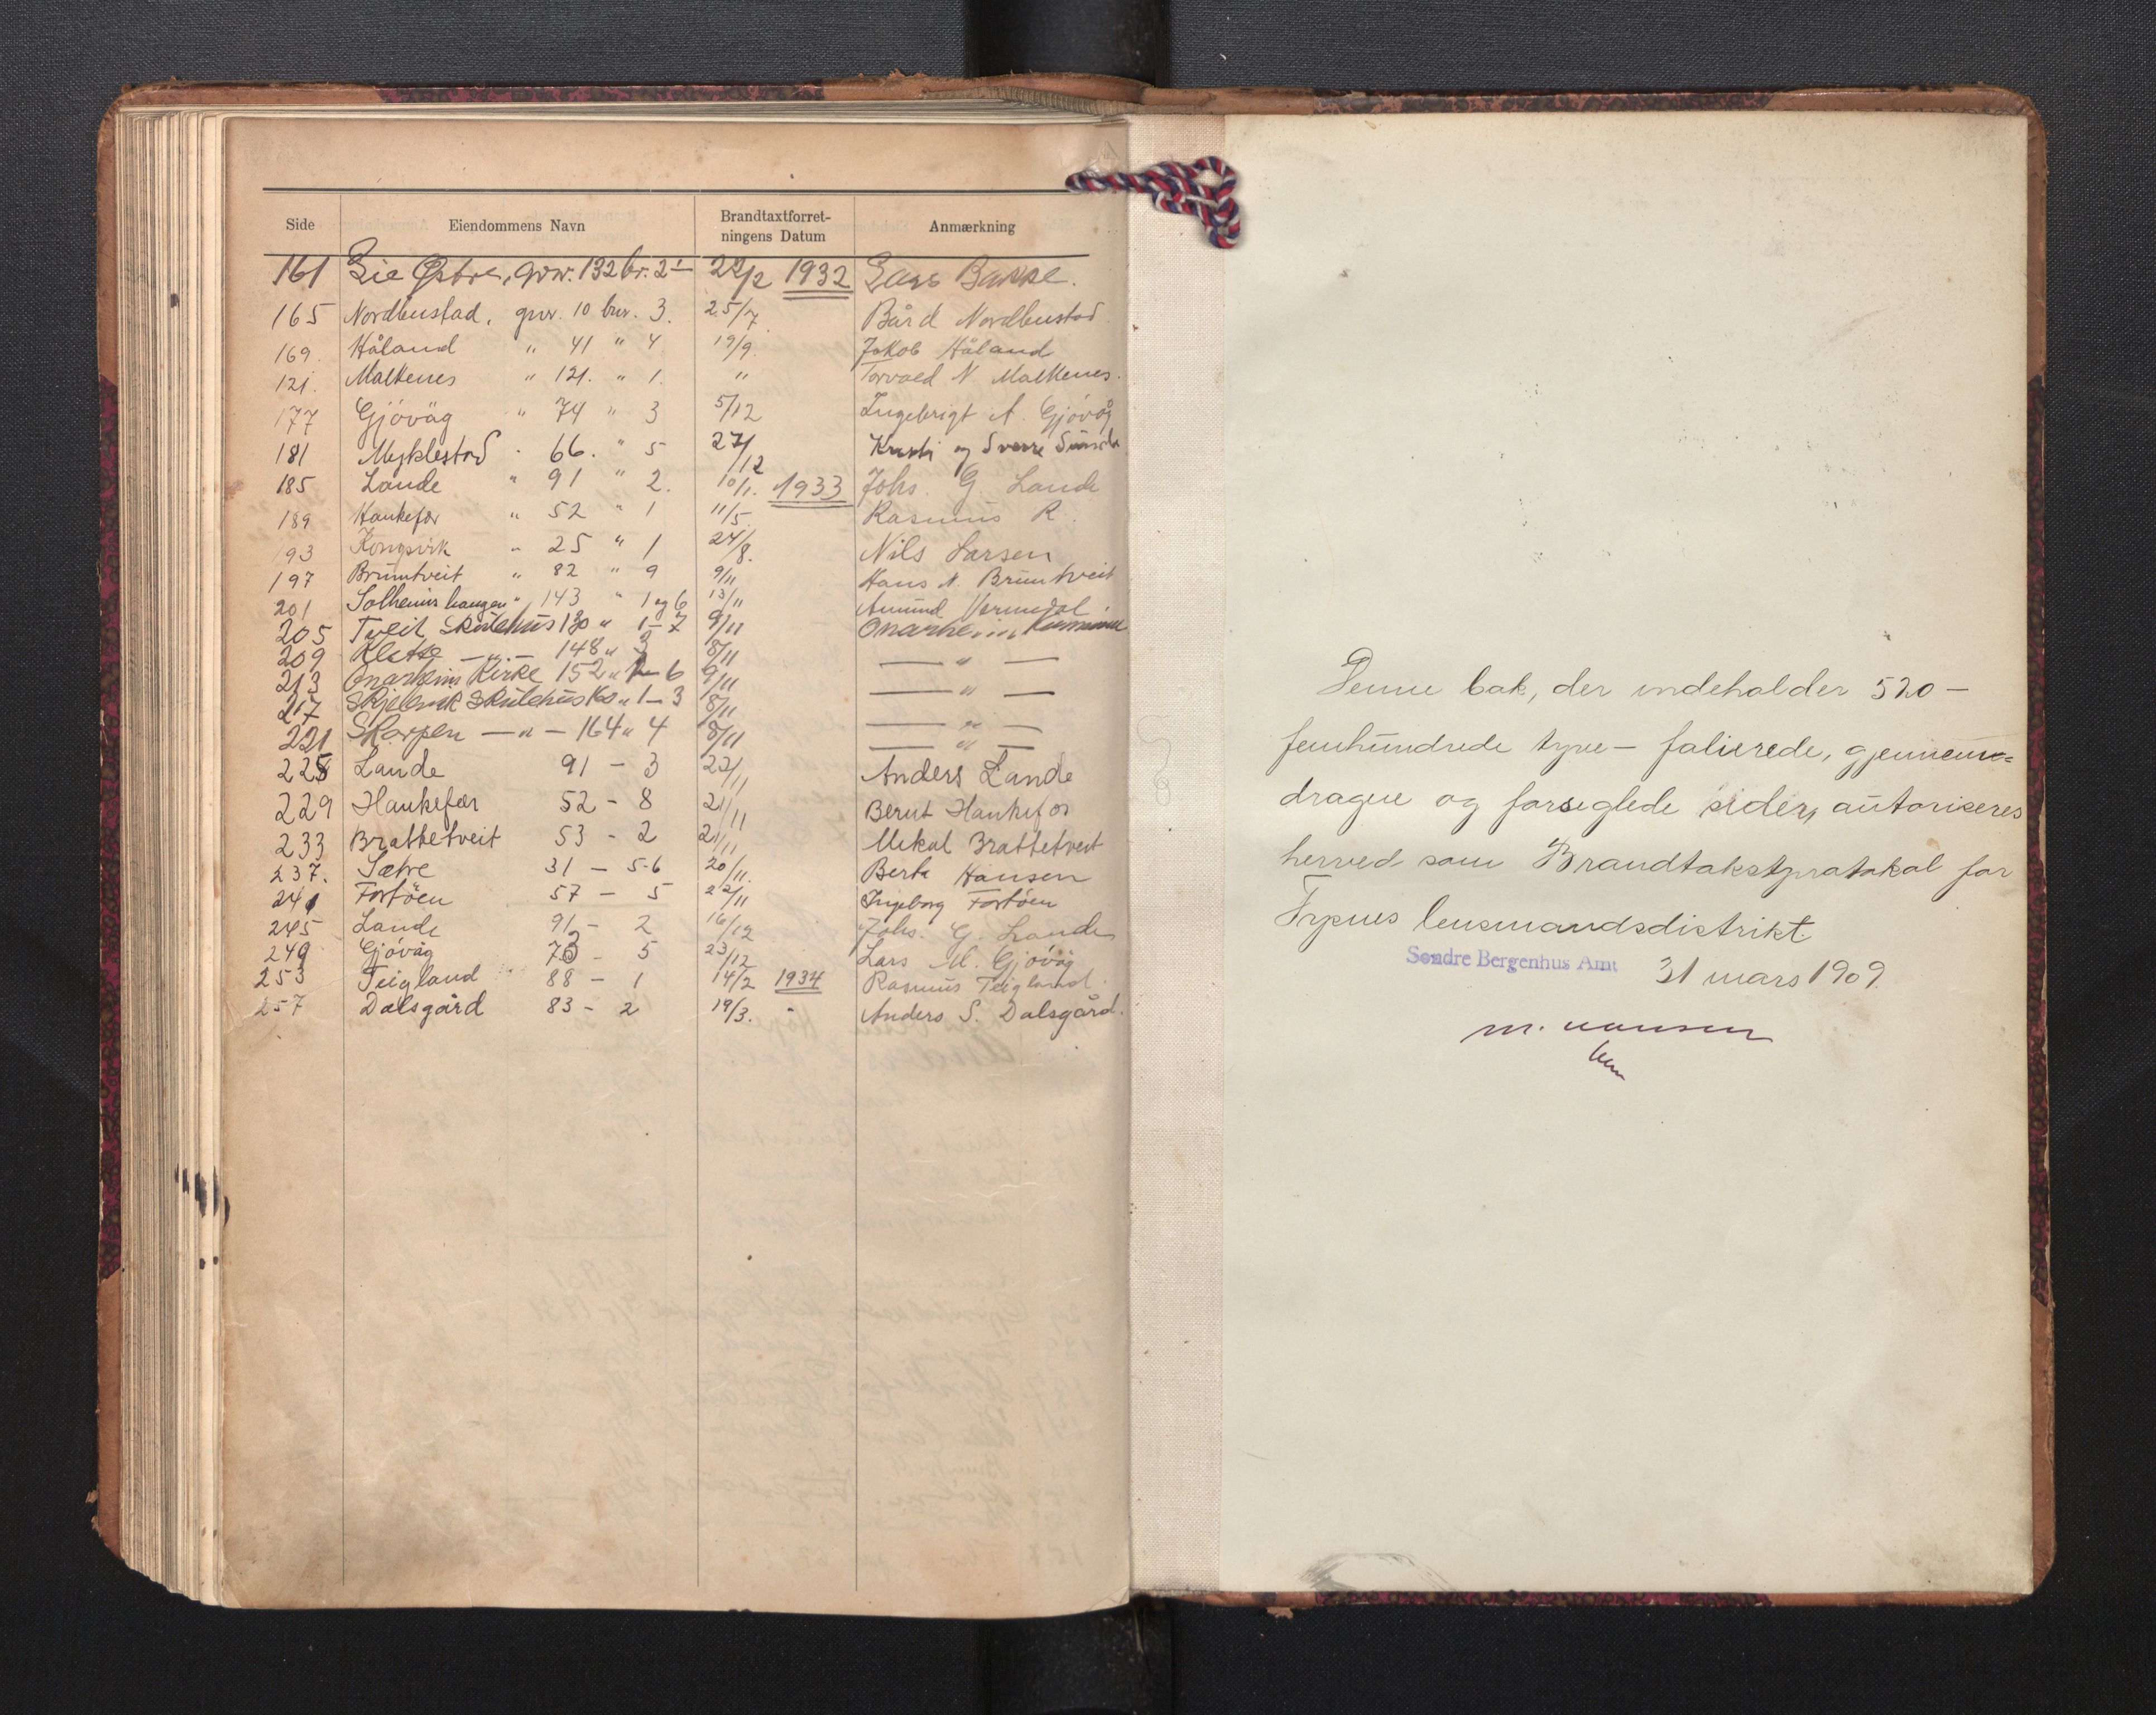 Side Eiendommens Navn Brandtaxtforret- Anmærkning
ningens Datum
161 Lie Østre, gnr. 132 br. 2 22/2 1932 Lars Bakke.
165 Nordhustad, gnr. 10 bnr. 3. 25/7. Bård Nordhustad
169. Håland " 41 " 4 19/9. Jakob Håland
121. Malkenes " 121. " 1. " Torvald N. Malkenes.
177 Gjövåg " 74 " 3 5/12 Ingebrigt A. Gjövåg
181 Myklestad " 66. " 5 27/12 og Sverre
185 Lande " 91 " 2. 10/1. 1933 Johs. G. Lande
189 Haukefær " 52 " 1 11/5. Rasmus R.
193 Kongsvik " 25 " 1 24/8. Nils Larsen
197 Bruntveit " 82 " 9 9/11 Hans N. Bruntveit
201 Solheims haugen " 143 " 1 og 6 13/11 Amund
205 Tveit Skulehus 130 " 1-7 9/11 Onarheim Kommune
209 Klette — " — 148 " 3 8/11 — " —
213 Onarheim Kirke 152 " 6 9/11 — " —
217 Skjelevik Skulehus 160 " 1-3 8/11 — " —
221 Skorpen — " — 164 " 4 8/11 — " —
225 Lande 91 - 3 22/11 Anders Lande
229 Haukefær 52 - 8 21/11 Berut Haukefær
233 Brattetveit 53 - 2 21/11 Mikal Brattetveit
237. Sætre 31 - 5-6 20/11. Berta Hansen
241 Fortöen 57 - 5 22/11 Ingeborg Fortöen
245 Lande 91 - 2 16/12 Johs. G. Lande
249 Gjövåg 73 - 5 23/12 Lars M. Gjövåg
253 Teigland 88 - 1 14/2 1934 Rasmus Teigland.
257 Dalsgård 83 - 2 19/3. " Anders S. Dalsgård.
Denne bok, der indeholder 520 -
femhundrede tyve - folierede, gjennem-
dragne og forseglede sider, autoriseres
herved som Brandtakstprotokol for
Fjeldberg lensmandsdistrikt.
Søndre Bergenhus Amt 31 mars 1909.
M. Hansen